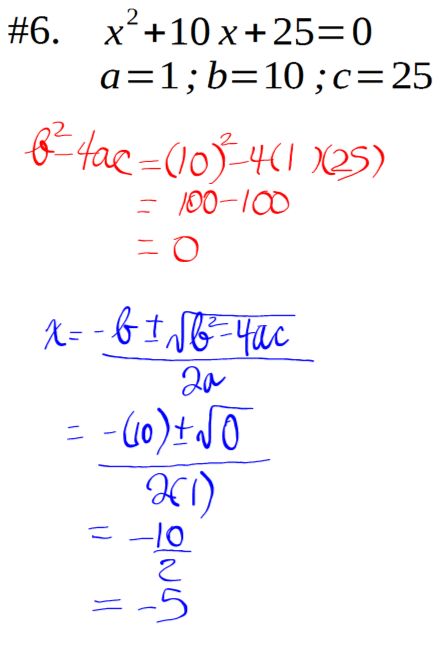 #6. x²+10x+25=0
a=1; b=10; c=25
b²-4ac=(10)²-4(1)(25)
= 100-100
= 0
x= -b±√b²-4ac
2a
= -(10)±√0
2(1)
= -10
2
= -5